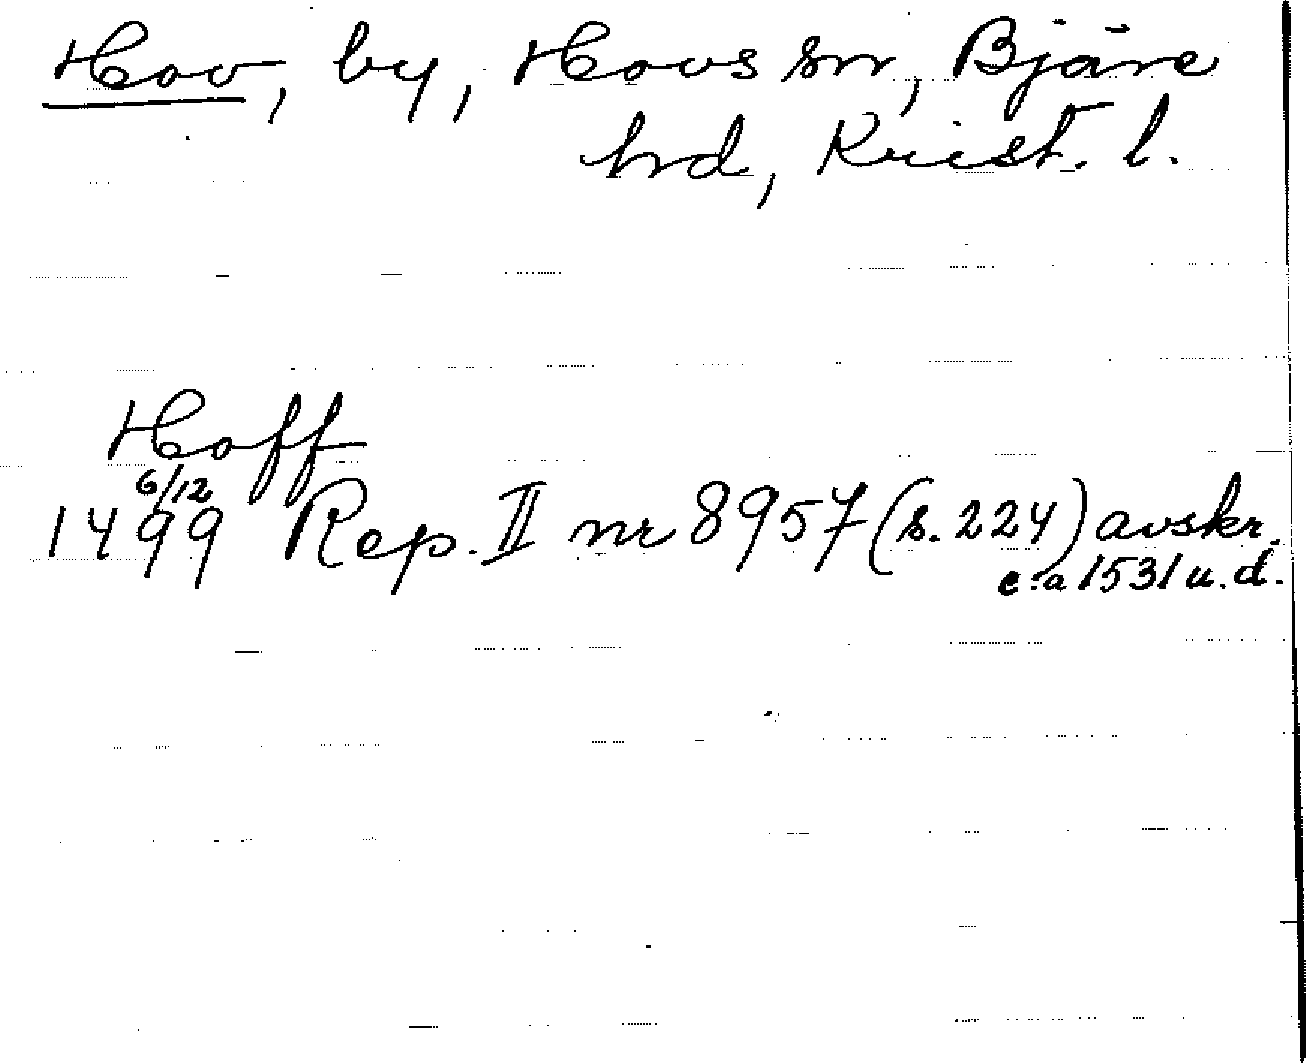 Hov, by, Hovs sn, Bjäre
hrd, Krist. l.
Hoff
6/12
1499 Rep. II nr 8957 (s. 224) avskr.
c:a 1531 u.d.